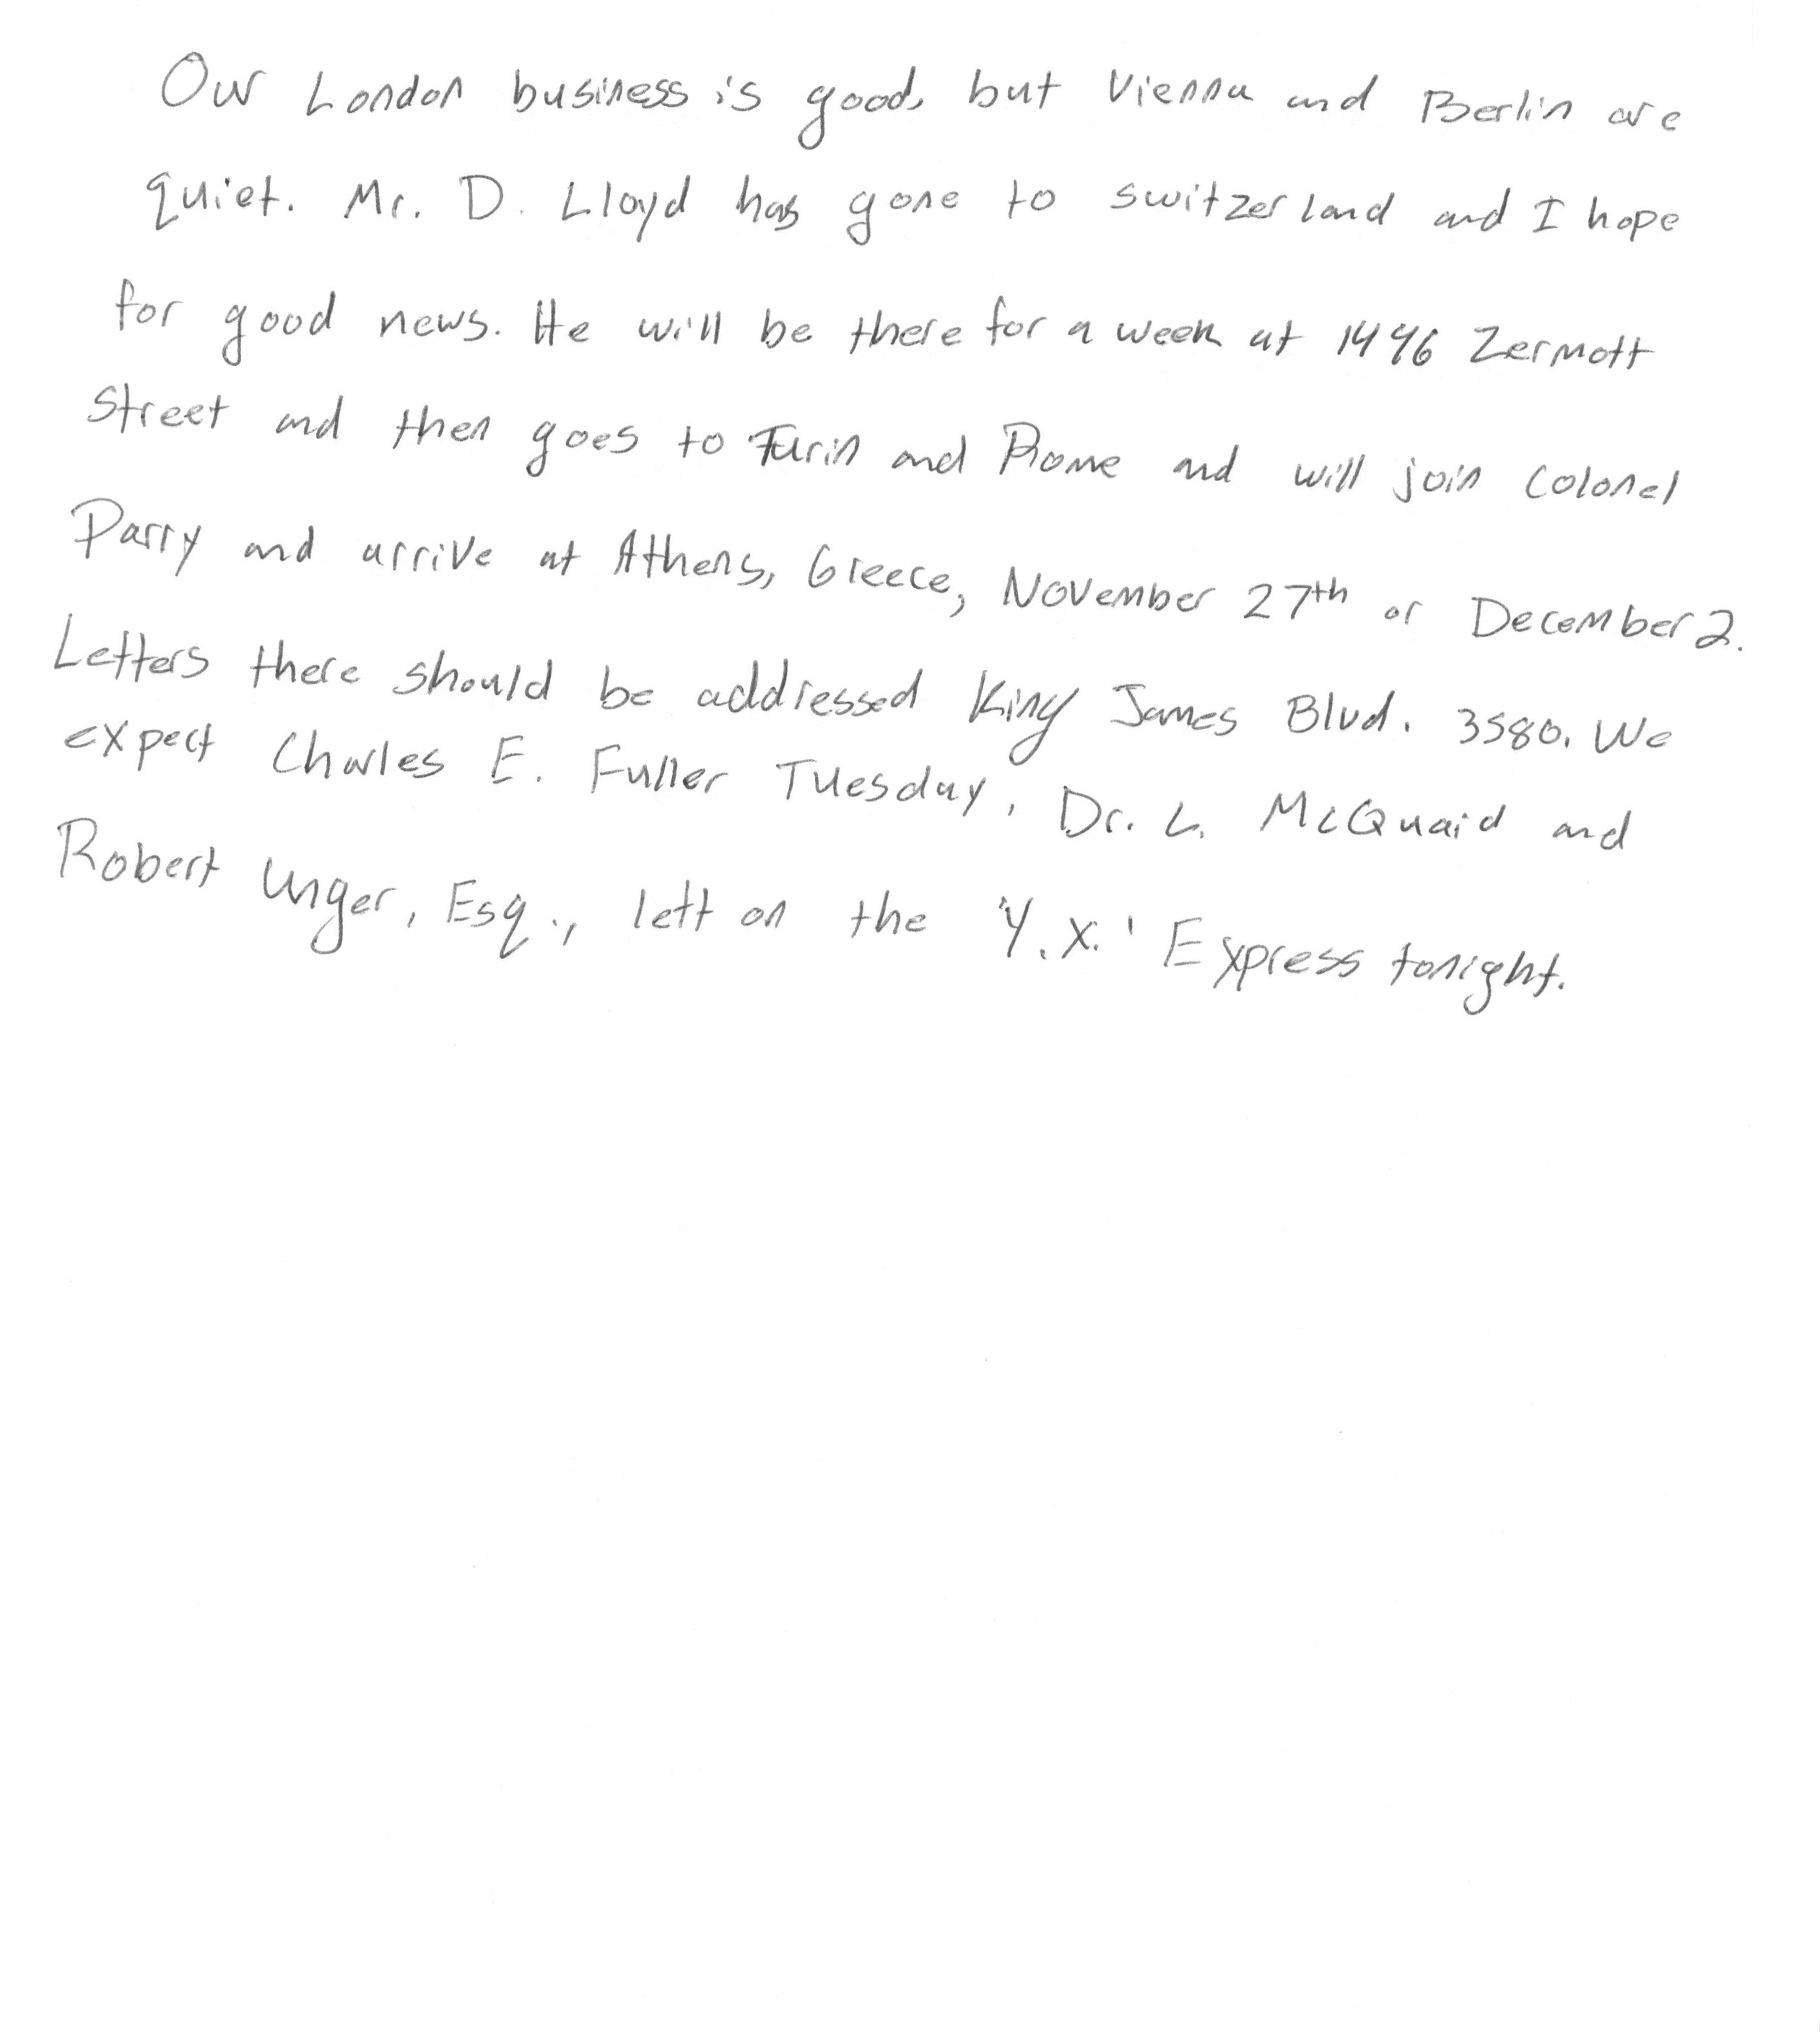 Our London business is good, but Vienna and Berlin are
quiet. Mr. D. Lloyd has gone to Switzerland and I hope
for good news. He will be there for a week at 1496 Zermott
Street and then goes to Turin and Rome and will join Colonel
Parry and arrive at Athens, Greece, November 27th or December 2.
Letters there should be addressed King James Blvd. 3580. We
expect Charles E. Fuller Tuesday. Dr. L. McQuaid and
Robert Unger, Esq., left on the 'Y.X.' Express tonight.